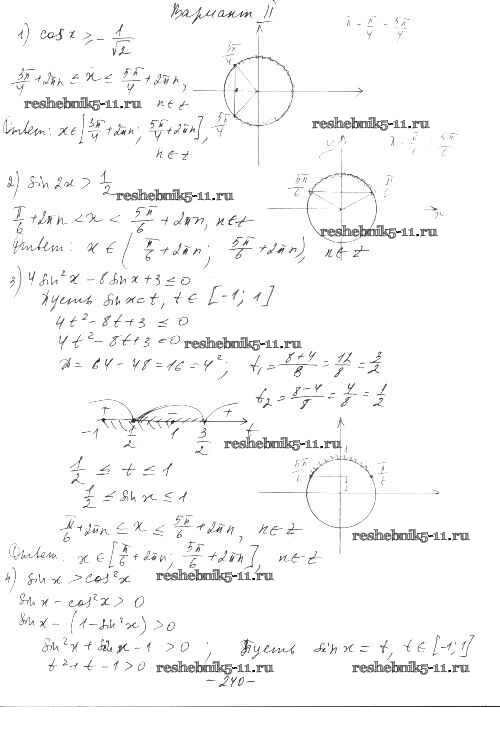 Вариант II
1) cos x ≥ - 1/√2
π - π/4 = 3π/4
3π/4 + 2πn ≤ x ≤ 5π/4 + 2πn,
n ∈ z
reshebnik5-11.ru
reshebnik5-11.ru
Ответ: x ∈ [3π/4 + 2πn; 5π/4 + 2πn],
n ∈ z
3π/4
5π/4
2) sin 2x > 1/2
reshebnik5-11.ru
π/6 + 2πn < x < 5π/6 + 2πn, n ∈ z
5π/6
π/6
reshebnik5-11.ru
Ответ: x ∈ (π/6 + 2πn; 5π/6 + 2πn), n ∈ z
3) 4 sin²x - 8 sin x + 3 ≤ 0
Пусть sin x = t, t ∈ [-1; 1]
4t² - 8t + 3 ≤ 0
4t² - 8t + 3 = 0
reshebnik5-11.ru
D = 64 - 48 = 16 = 4²; t₁ = 8+4/8 = 12/8 = 3/2
t₂ = 8-4/8 = 4/8 = 1/2
+ - +
-1 1/2 1 3/2 t
reshebnik5-11.ru
1/2 ≤ t ≤ 1
1/2 ≤ sin x ≤ 1
5π/6
π/6 + 2πn ≤ x ≤ 5π/6 + 2πn, n ∈ z
reshebnik5-11.ru
Ответ: x ∈ [π/6 + 2πn; 5π/6 + 2πn], n ∈ z
4) sin x > cos²x
reshebnik5-11.ru
sin x - cos²x > 0
sin x - (1 - sin²x) > 0
sin²x + sin x - 1 > 0; Пусть sin x = t, t ∈ [-1; 1]
t² + t - 1 > 0
reshebnik5-11.ru
reshebnik5-11.ru
- 240 -